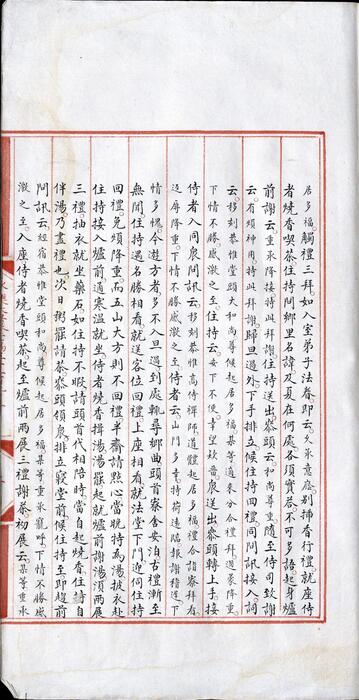 居多福觸禮三拜如入室弟子法眷即云久承意應別揷香行禮就座侍
者燒香喫茶住持問鄉里名諱及夏在何處各須實荅不可多語起身爐
前謝云重承降接特此拜謝住持送出叅頭云和尚尊重隨至侍司致謝
云有煩神用持此拜謝歸旦過外下手排立候住持回禮同問訊接入詞
云移刻恭惟堂頭大和尚尊候起居多福某等適來分合禮拜過蒙降重
下情不勝感激之至住持云女下不便幸望欵旨衆送出叅頭轉上手接
侍者入同衆問訊云移刻恭惟高侍禪師道體起居多福禮合詣寮拜看
返辱降重下情不勝感激之至侍者云山門多幸特荷遠臨報謝稽遲下
情多愧今遊方者多不入旦過到處輒尋鄉曲頭首寮舍安泊古禮漸至
無聞住持遇名勝相看就送客位回禮上座相看就法堂下間迎伺住持
回禮免煩降重而五山大方則不回禮半齋請點心當晚持爲湯披衣赴
住持接入爐前通寒溫就坐侍者燒香揖湯湯罷起就爐前謝湯須兩展
三禮抽衣就坐藥石如住持不暇請頭首代相陪時當自起燒香住請自
伴湯乃盡禮也次日粥罷請茶叅頭領衆排立寢堂前候住持至即趨前
問訊云經宿恭惟堂頭和尚尊候起居多福某等重承寵呼下情不勝感
激之至入座侍者燒香喫茶起至爐前兩展三禮謝茶初展云某等重承